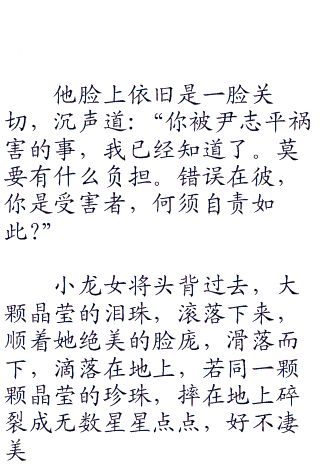 他脸上依旧是一脸关
切，沉声道：“你被尹志平祸
害的事，我已经知道了。莫
要有什么负担。错误在彼，
你是受害者，何须自责如
此？”
小龙女将头背过去，大
颗晶莹的泪珠，滚落下来，
顺着她绝美的脸庞，滑落而
下，滴落在地上，若同一颗
颗晶莹的珍珠，摔在地上碎
裂成无数星星点点，好不凄
美